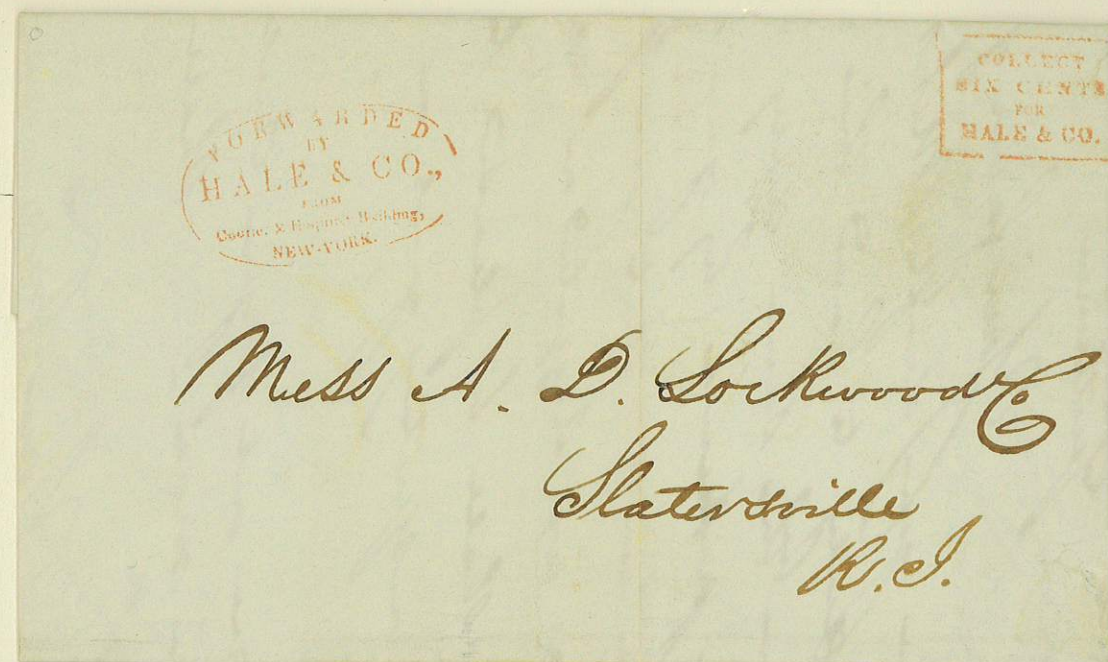 FORWARDED
BY
HALE & CO.,
FROM
Courier & Enquirer Building,
NEW-YORK.
COLLECT
SIX CENTS
FOR
HALE & CO.
Mess A. D. Lockwood & Co
Slatersville
R.I.